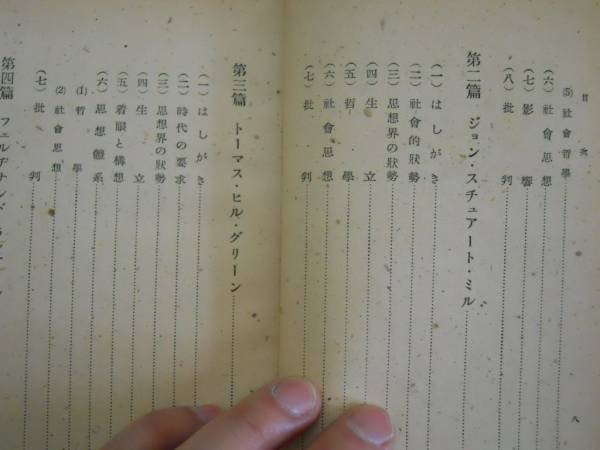 目次
(5) 社會哲學
(六) 社會思想
(七) 影響
(八) 批判
第二篇 ジョン・スチュアート・ミル
(一) はしがき
(二) 社會的狀勢
(三) 思想界の狀勢
(四) 生立
(五) 哲學
(六) 社會思想
(七) 批判
八
第三篇 トーマス・ヒル・グリーン
(一) はしがき
(二) 時代の要求
(三) 思想界の狀勢
(四) 生立
(五) 着眼と構想
(六) 思想體系
(1) 哲學
(2) 社會思想
(七) 批判
第四篇 フェルヂナンド・